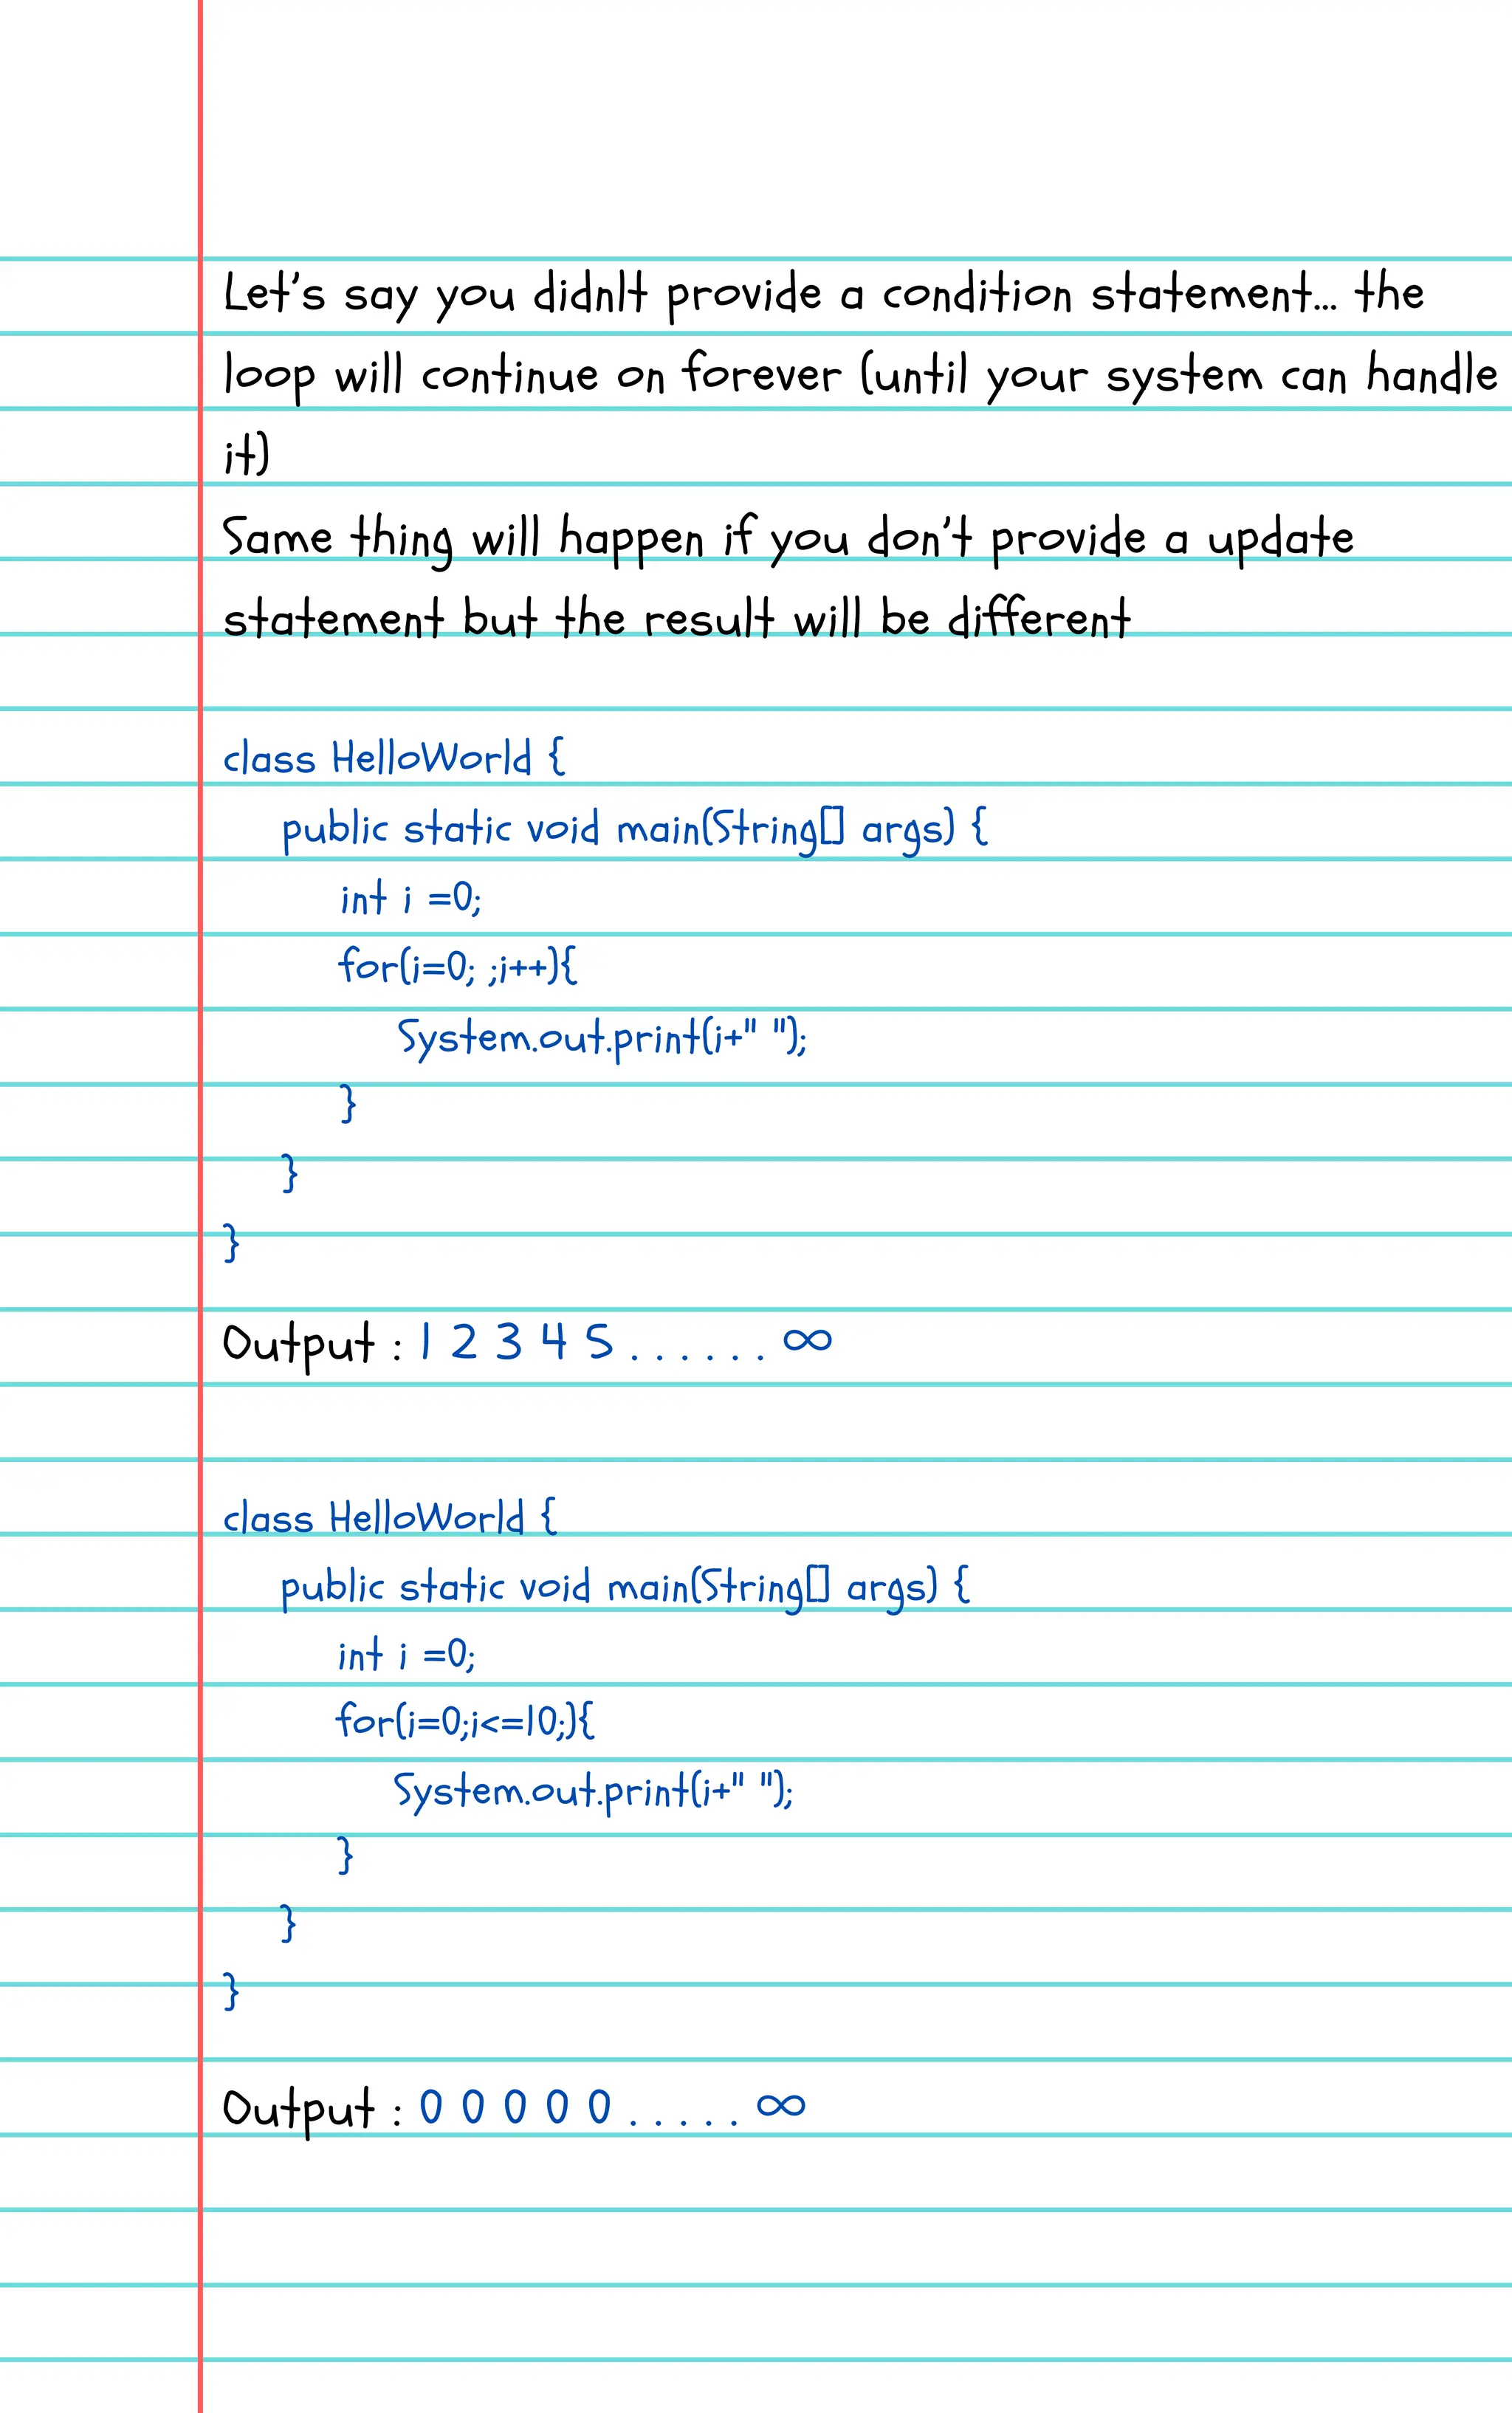 Let's say you didn|t provide a condition statement... the
loop will continue on forever (until your system can handle
it)
Same thing will happen if you don't provide a update
statement but the result will be different
class HelloWorld {
public static void main(String[] args) {
int i =0;
for(i=0; ;i++){
System.out.print(i+" ");
}
}
}
Output : 1 2 3 4 5 . . . . . . ∞
class HelloWorld {
public static void main(String[] args) {
int i =0;
for(i=0;i<=10;){
System.out.print(i+" ");
}
}
}
Output : 0 0 0 0 0 . . . . . ∞